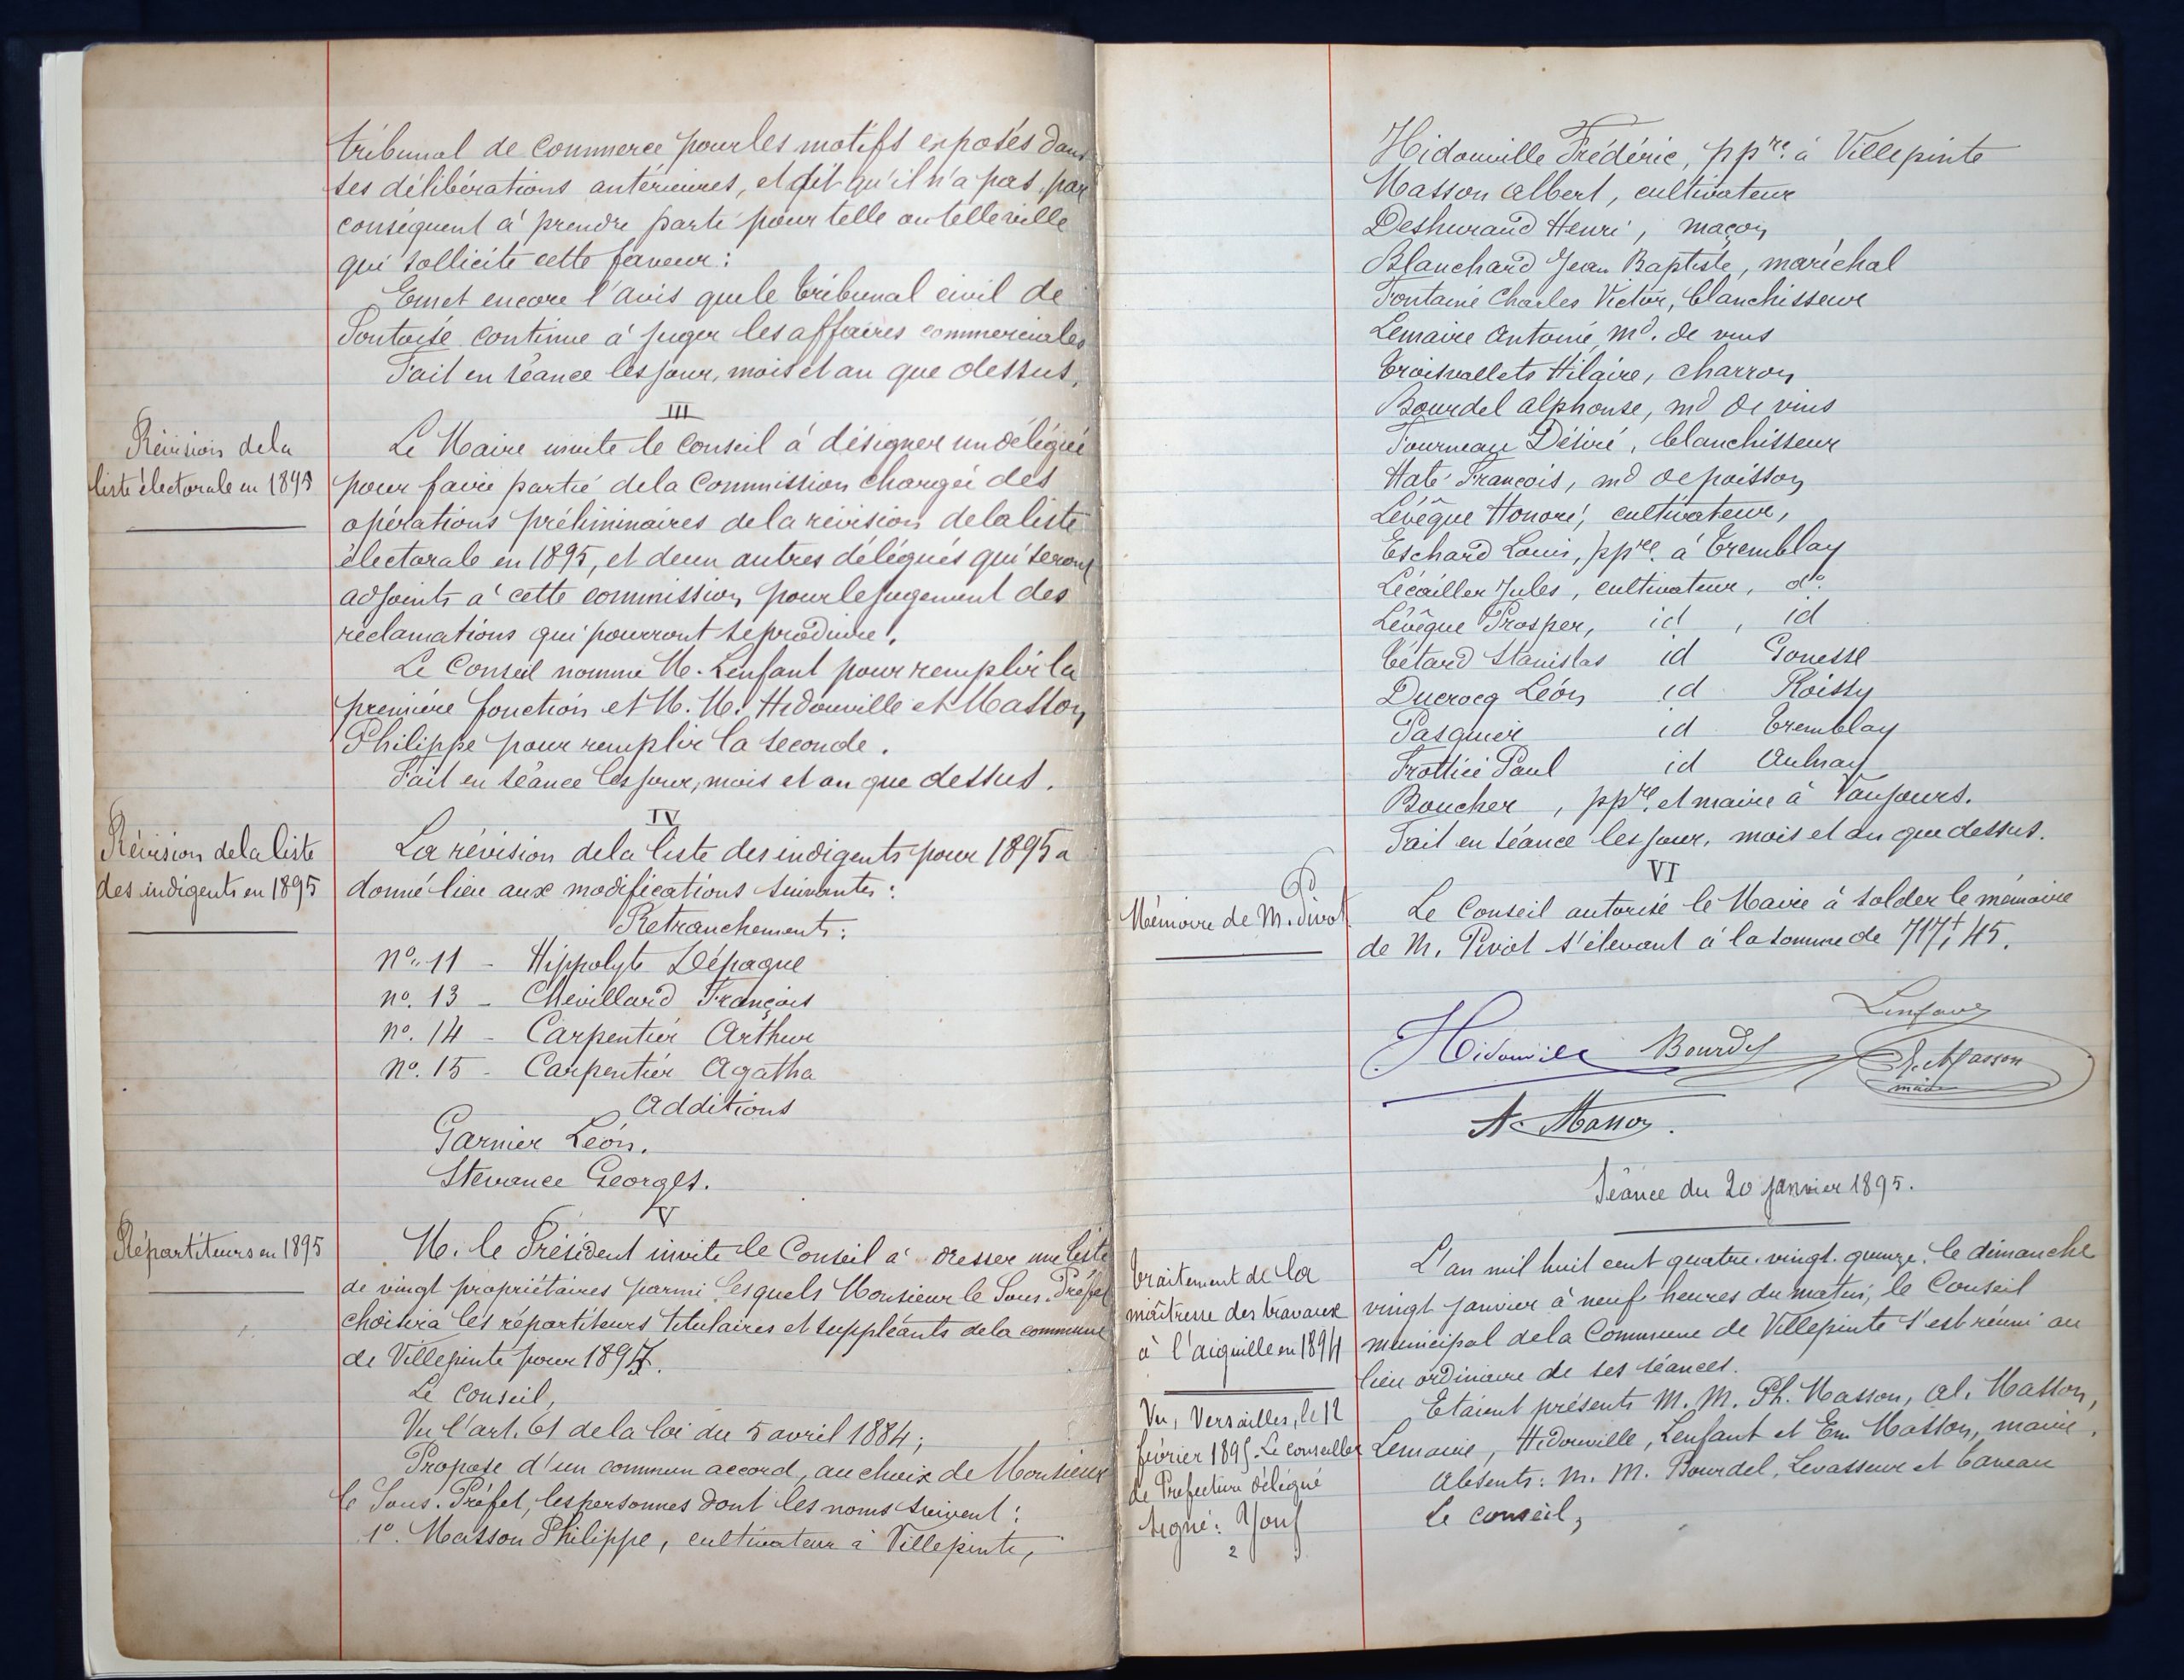 tribunal de commerce pour les motifs exposés dans
ses délibérations antérieures, et dit qu'il n'a pas, par
conséquent à prendre parti pour telle ou telle ville
qui sollicite cette faveur :
Emet encore l'avis que le tribunal civil de
Pontoise continue à juger les affaires commerciales
Fait en séance les jour, mois et an que dessus.
III
Révision de la
liste électorale en 1895
Le Maire invite le Conseil à désigner un délégué
pour faire partie de la Commission chargée des
opérations préliminaires de la révision de la liste
électorale en 1895, et deux autres délégués qui seront
adjoints à cette commission pour le jugement des
réclamations qui pourront se produire.
Le Conseil nomme M. Lenfant pour remplir la
première fonction et M. M. Hidouville et Masson
Philippe pour remplir la seconde.
Fait en séance les jour, mois et an que dessus.
IV
Révision de la liste
des indigents en 1895
La révision de la liste des indigents pour 1895 a
donné lieu aux modifications suivantes :
Retranchements :
no. 11 - Hippolyte Lépaque
no. 13 - Chevillard François
no. 14 - Carpentier Arthur
no. 15 - Carpentier Agatha
Additions
Garnier Léon.
Stevance Georges.
V
Répartiteurs en 1895
M. le Président invite le Conseil à dresser une liste
de vingt propriétaires parmi lesquels Monsieur le Sous-Préfet
choisira les répartiteurs titulaires et suppléants de la commune
de Villepinte pour 1895.
Le Conseil,
Vu l'art. 61 de la loi du 5 avril 1884 ;
Propose d'un commun accord, au choix de Monsieur
le Sous-Préfet, les personnes dont les noms suivent :
1o. Masson Philippe, cultivateur à Villepinte,
Hidouville Frédéric, ppre. à Villepinte
Masson Albert, cultivateur
Deshuraud Henri, maçon
Blanchard Jean Baptiste, maréchal
Fontaine Charles Victor, blanchisseur
Lemaire Antoine, md. de vins
Troisvallets Hilaire, charron
Bourdel Alphonse, md de vins
Fourneau Désiré, blanchisseur
Haté François, md de poisson
Lévêque Honoré, cultivateur,
Eschard Louis, ppre. à Tremblay
Lécailler Jules, cultivateur, do.
Lévêque Prosper, id, id
Tétard Stanislas id Gonesse
Ducrocq Léon id Roissy
Pasquier id Tremblay
Frottié Paul id Aulnay
Boucher, ppre. et maire à Vaujours.
Fait en séance les jour, mois et an que dessus.
VI
Mémoire de M. Pivot
Le Conseil autorise le Maire à solder le mémoire
de M. Pivot s'élevant à la somme de 717f,45.
Lenfant
Hidouville Bourdel
E. Masson
maire
A. Masson.
Séance du 20 janvier 1895.
Traitement de la
maîtresse des travaux
à l'aiguille en 1894
L'an mil huit cent quatre-vingt-quinze, le dimanche
vingt janvier à neuf heures du matin, le Conseil
municipal de la Commune de Villepinte s'est réuni au
lieu ordinaire de ses séances.
Etaient présents M. M. Ph. Masson, Al. Masson,
Lemaire, Hidouville, Lenfant et Em Masson, maire.
Absents : M. M. Bourdel, Levasseur et Caneau
Le conseil,
Vu, Versailles, le 12
février 1895. Le conseiller
de Préfecture délégué
signé :
2